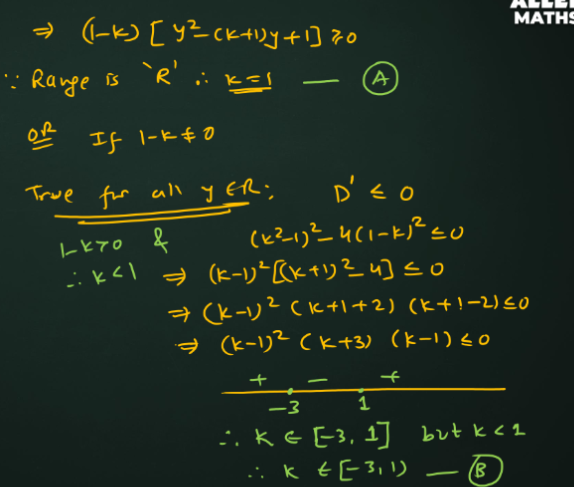 ALLEN
MATHS
⇒ (1-k) [ y²-(k+1)y+1] ≥0
∵ Range is 'R' ∴ k=1 — Ⓐ
OR If 1-k≠0
True for all y∈R: D' ≤ 0
1-k>0 & (k²-1)²-4(1-k)² ≤0
∴ k<1 ⇒ (k-1)²[(k+1)²-4] ≤ 0
⇒ (k-1)² (k+1+2) (k+1-2)≤0
⇒ (k-1)² (k+3) (k-1) ≤0
+ - +
-3 1
∴ k ∈ [-3, 1] but k<1
∴ k ∈ [-3,1) — Ⓑ